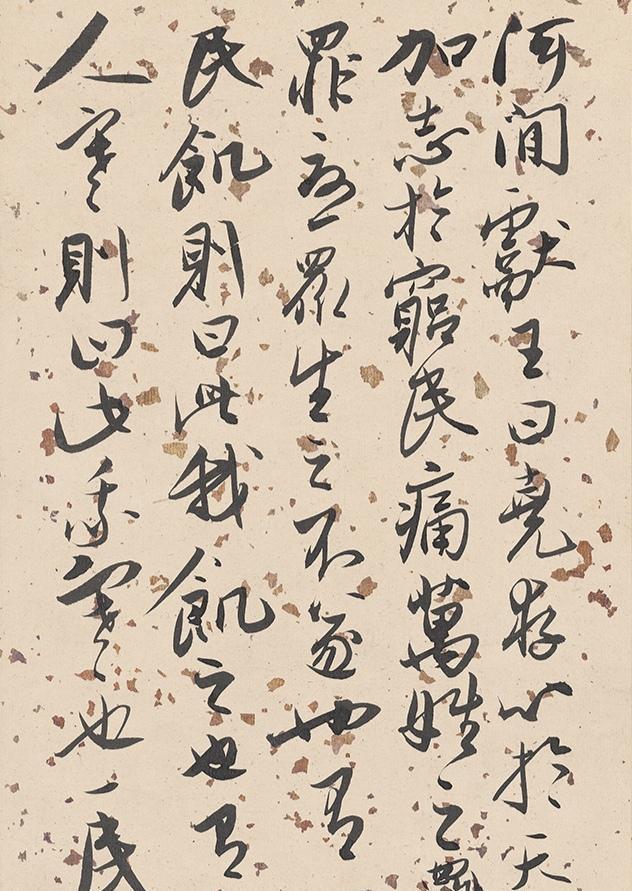 河間獻王曰堯存心於天
加志於窮民痛萬姓之罹
罪憂眾生之不遂也有
民飢則曰此我飢之也有
人寒則曰此我寒之也一民